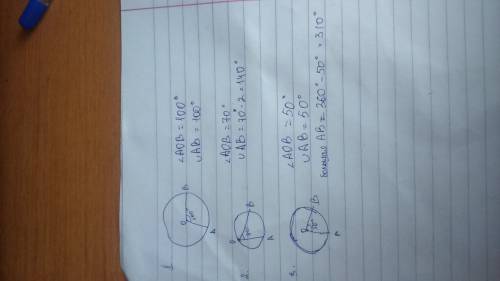 1.
∠AOB = 100°
∪AB = 100°
2.
∠AOB = 70°
∪AB = 70°·2 = 140°
3.
∠AOB = 50°
∪AB = 50°
AB = 360° - 50° = 310°